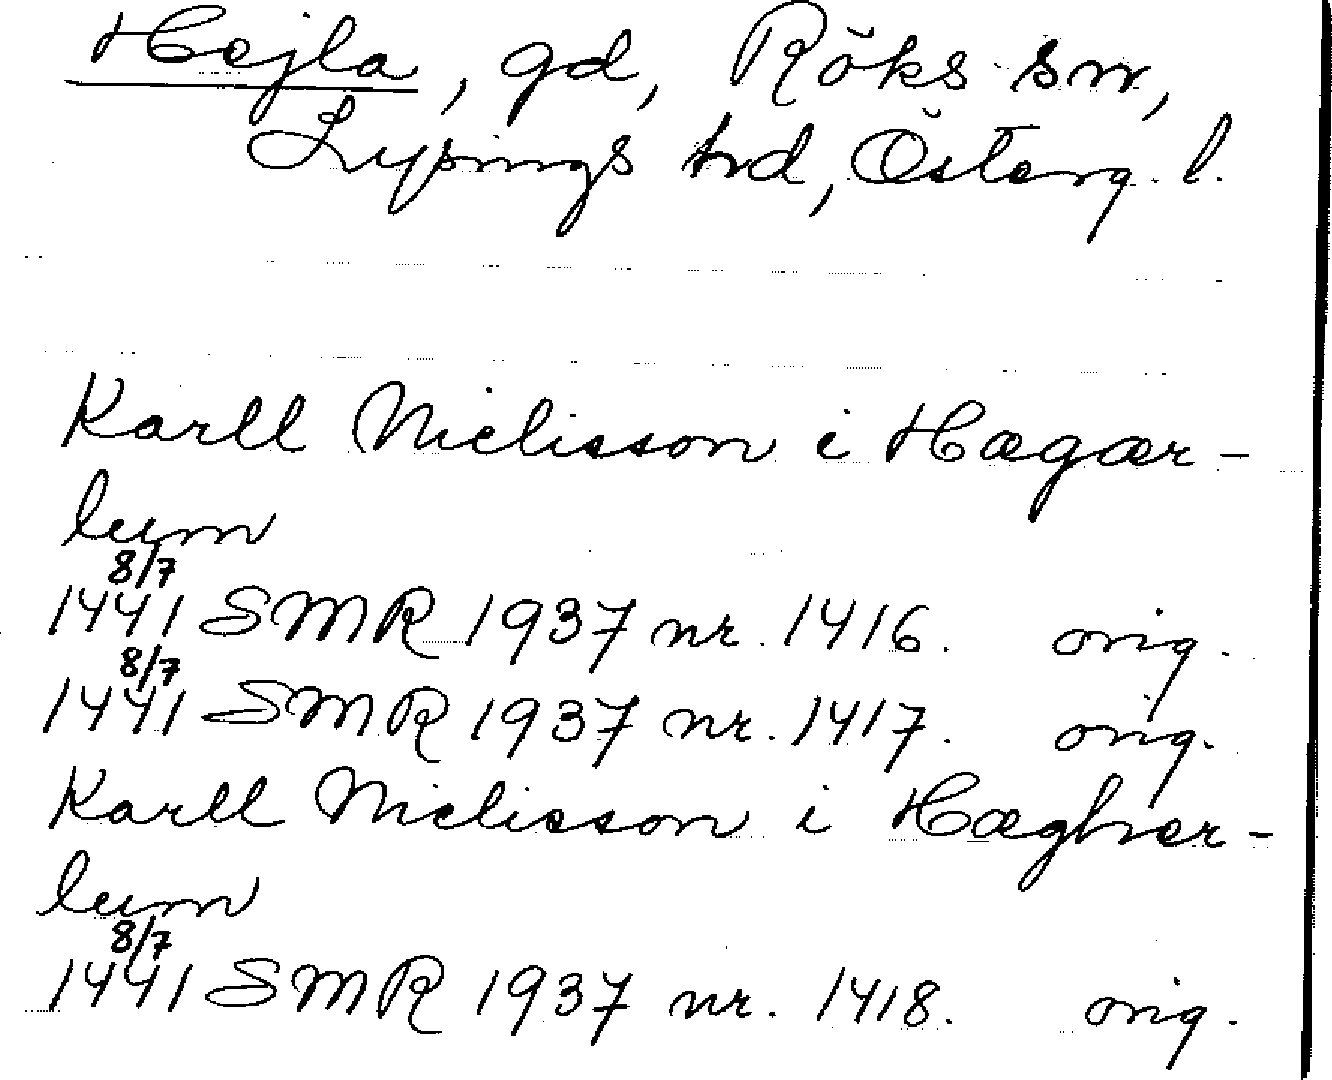 Hejla, gd, Röks sn,
Lysings hd, Österg. l.
Karll Niclisson i Hægær-
lum
8/7
1441 SMR 1937 nr. 1416. orig.
8/7
1441 SMR 1937 nr. 1417. orig.
Karll Niclisson i Hæghær-
lum
8/7
1441 SMR 1937 nr. 1418. orig.